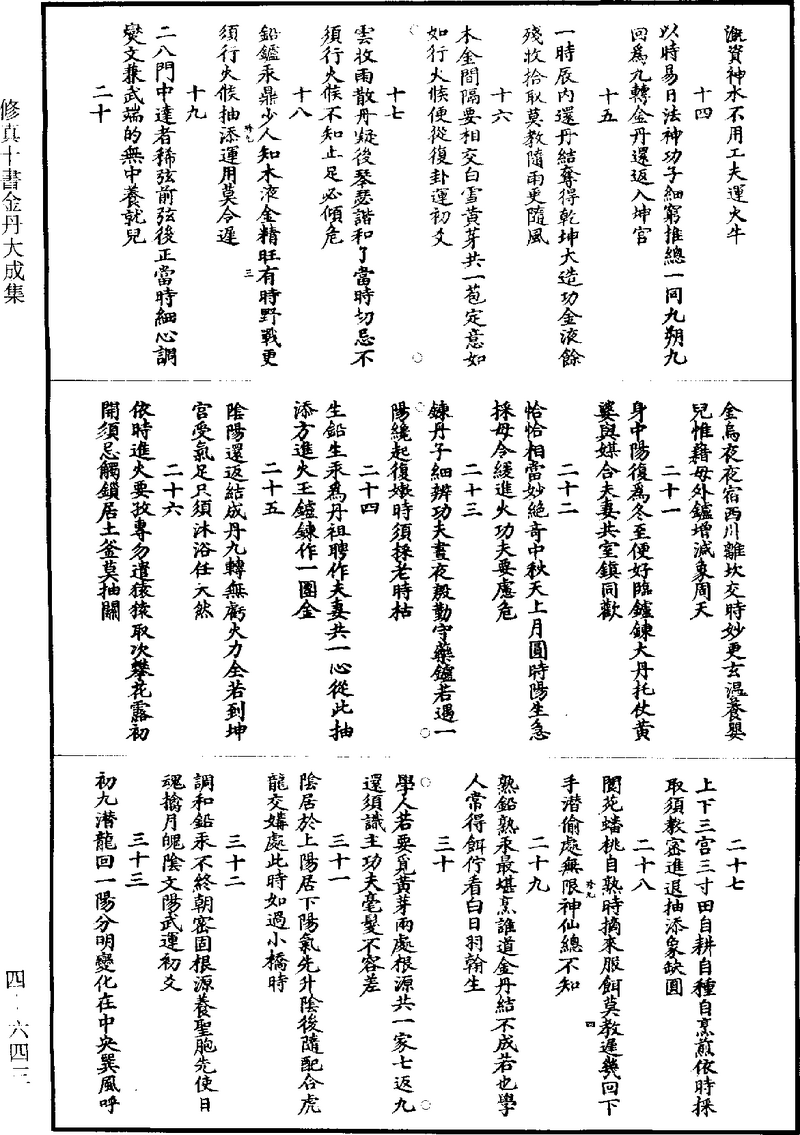 溉資神水不用工夫運火牛
十四
以時易日法神功子細窮推總一同九朔九
回爲九轉金丹還返入坤宮
十五
一時辰內還丹結奪得乾坤大造功金液餘
殘收拾取莫教隨雨更隨風
十六
木金間隔要相交白雪黃芽共一苞定意如
如行火候便從復卦運初爻
十七
雲收雨散丹凝後琴瑟諧和了當時切忌不
須行火候不知止足必傾危
十八
鉛鑪汞鼎少人知木液金精旺有時野戰更
須行火候抽添運用莫令遲
十九
二八門中達者稀弦前弦後正當時細心調
燮文兼武端的無中養就兒
二十
金烏夜夜宿西川離坎交時妙更玄温養嬰
兒惟藉母外鑪增減象周天
二十一
身中陽復爲冬至便好臨鑪鍊大丹托仗黃
婆與媒合夫妻共室鎮同歡
二十二
恰恰相當妙絶奇中秋天上月圓時陽生急
採毋令緩進火功夫要慮危
二十三
鍊丹子細辨功夫晝夜殷勤守藥鑪若遇一
陽纔起復嫩時須採老時枯
二十四
生鉛生汞爲丹祖聘作夫妻共一心從此抽
添方進火玉鑪鍊作一團金
二十五
陰陽還返結成丹九轉無虧火力全若到坤
宮受氣足只須沐浴任天然
二十六
依時進火要孜專勿遣猿猿取次攀花露初
開須忌觸鎖居土釜莫抽關
二十七
上下三宮三寸田自耕自種自烹煎依時採
取須教密進退抽添象缺圓
二十八
閬苑蟠桃自熟時摘來服餌莫教遲幾回下
手潛偷處無限神仙總不知
二十九
熟鉛熟汞最堪烹誰道金丹結不成若也學
人常得餌佇看白日羽翰生
三十
學人若要覓黃芽兩處根源共一家七返九
還須識主功夫毫髮不容差
三十一
陰居於上陽居下陽氣先升陰後隨配合虎
龍交媾處此時如過小橋時
三十二
調和鉛汞不終朝密固根源養聖胞先使日
魂擒月魄陰文陽武運初爻
三十三
初九潛龍回一陽分明變化在中央巽風呼
修真十書金丹大成集
四‧六四三